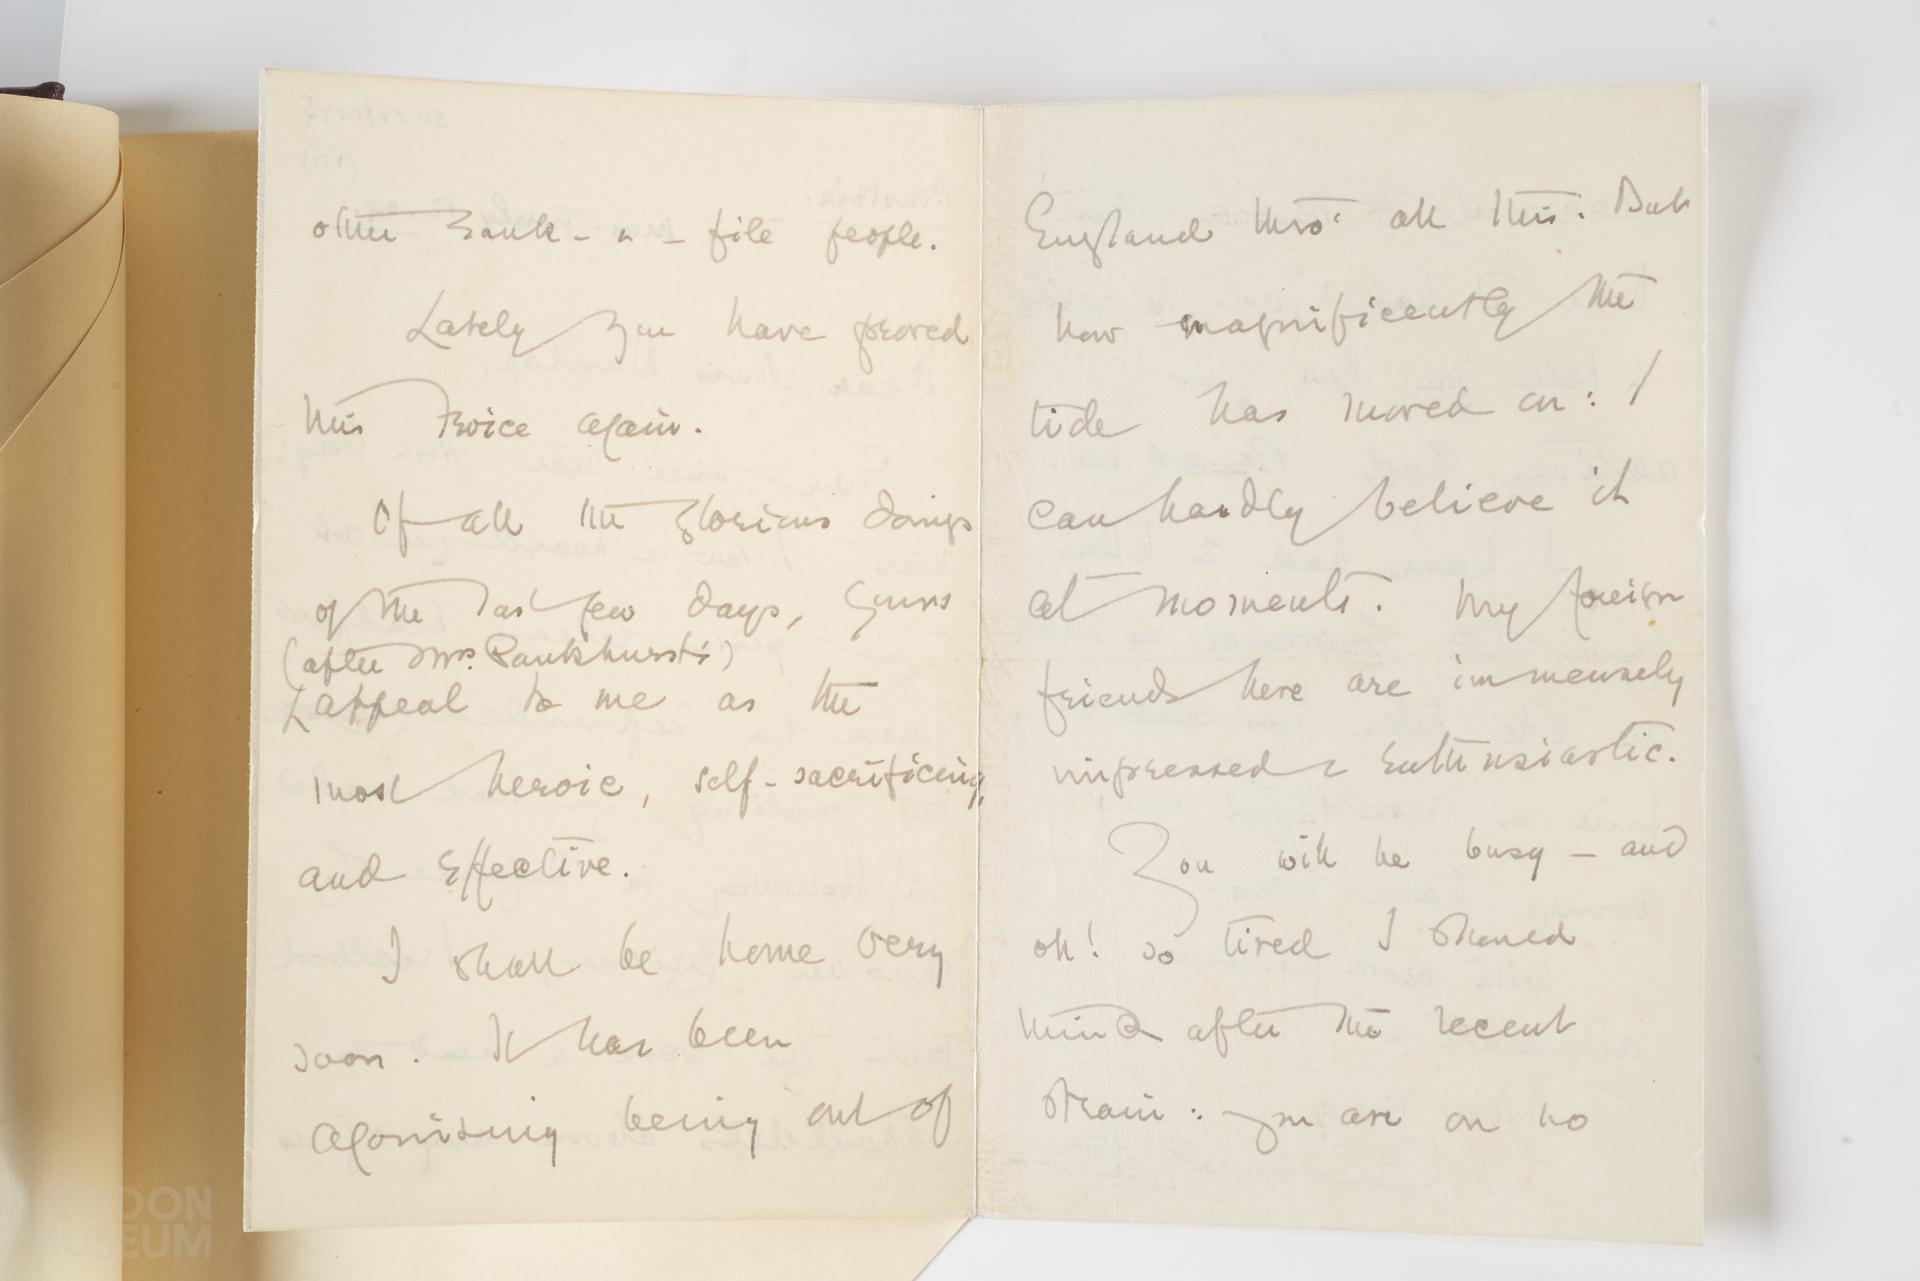 other rank-&-file people.
Lately you have proved
this twice again.
Of all the glorious doings
of the last few days, yours
(after Mrs. Pankhurst's)
appeal to me as the
most heroic, self-sacrificing,
and effective.
I shall be home very
soon. It has been
agonising being out of
England thro' all this. But
how magnificently the
tide has moved on: I
can hardly believe it
at moments. My foreign
friends here are immensely
impressed & enthusiastic.
You will be busy – and
oh! so tired I should
think after the recent
strain: you are on no
LONDON
MUSEUM